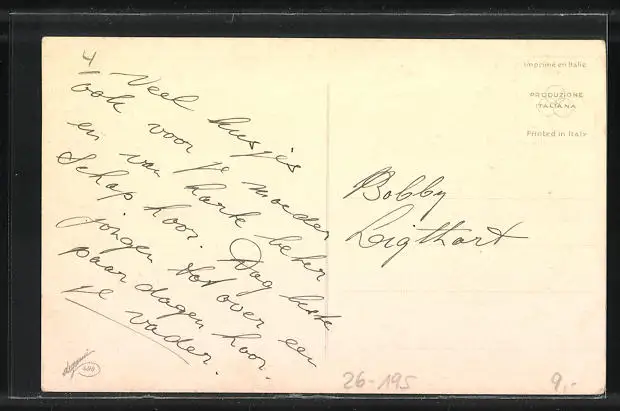 4
Veel kusjes
ook voor je moeder
en van harte beter
schap hoor. Dag beste
jongen tot over een
paar dagen hoor.
je vader.
Imprimé en Italie
PRODUZIONE
ITALIANA
Printed in Italy
Bobby
Ligthart
26-195
9,-